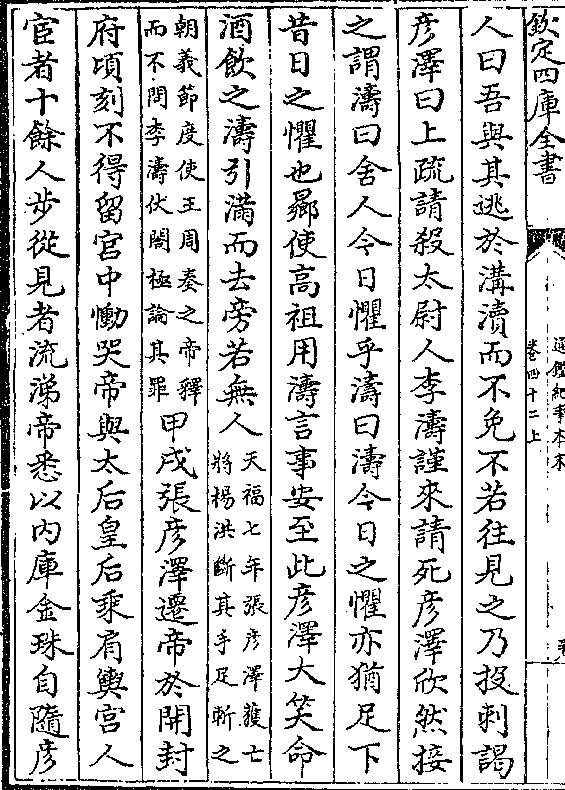 欽定四庫全書
通鑑紀事本末
卷四十二上
人曰吾與其逃於溝瀆而不免不若往見之乃投刺謁
彦澤曰上疏請殺太尉人李濤謹來請死彦澤欣然接
之謂濤曰舍人今日懼乎濤曰濤今日之懼亦猶足下
昔日之懼也曏使高祖用濤言事安至此彦澤大笑命
酒飲之濤引滿而去旁若無人
天福七年張彦澤獲亡
將楊洪斷其手足斬之
朝義節度使王周奏之帝釋
而不問李濤伏閤極論其罪
甲戌張彦澤遷帝於開封
府頃刻不得留宮中慟哭帝與太后皇后乘肩輿宮人
宦者十餘人步從見者流涕帝悉以内庫金珠自隨彦